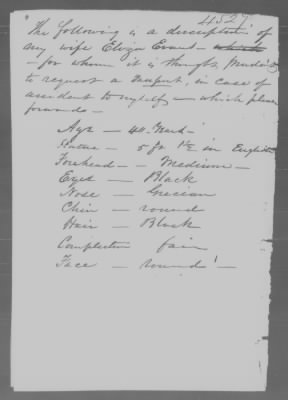 4527
The following is a description of
my wife Eliza
for whom it is thought
to request a Passport, in case of
accident to myself - which please
forward -
Age - 44
Stature - 5 ft 1½ in English
Forehead - Medium -
Eyes - Black
Nose - Grecian
Chin - round
Hair - Black
Complection fair
Face - round -